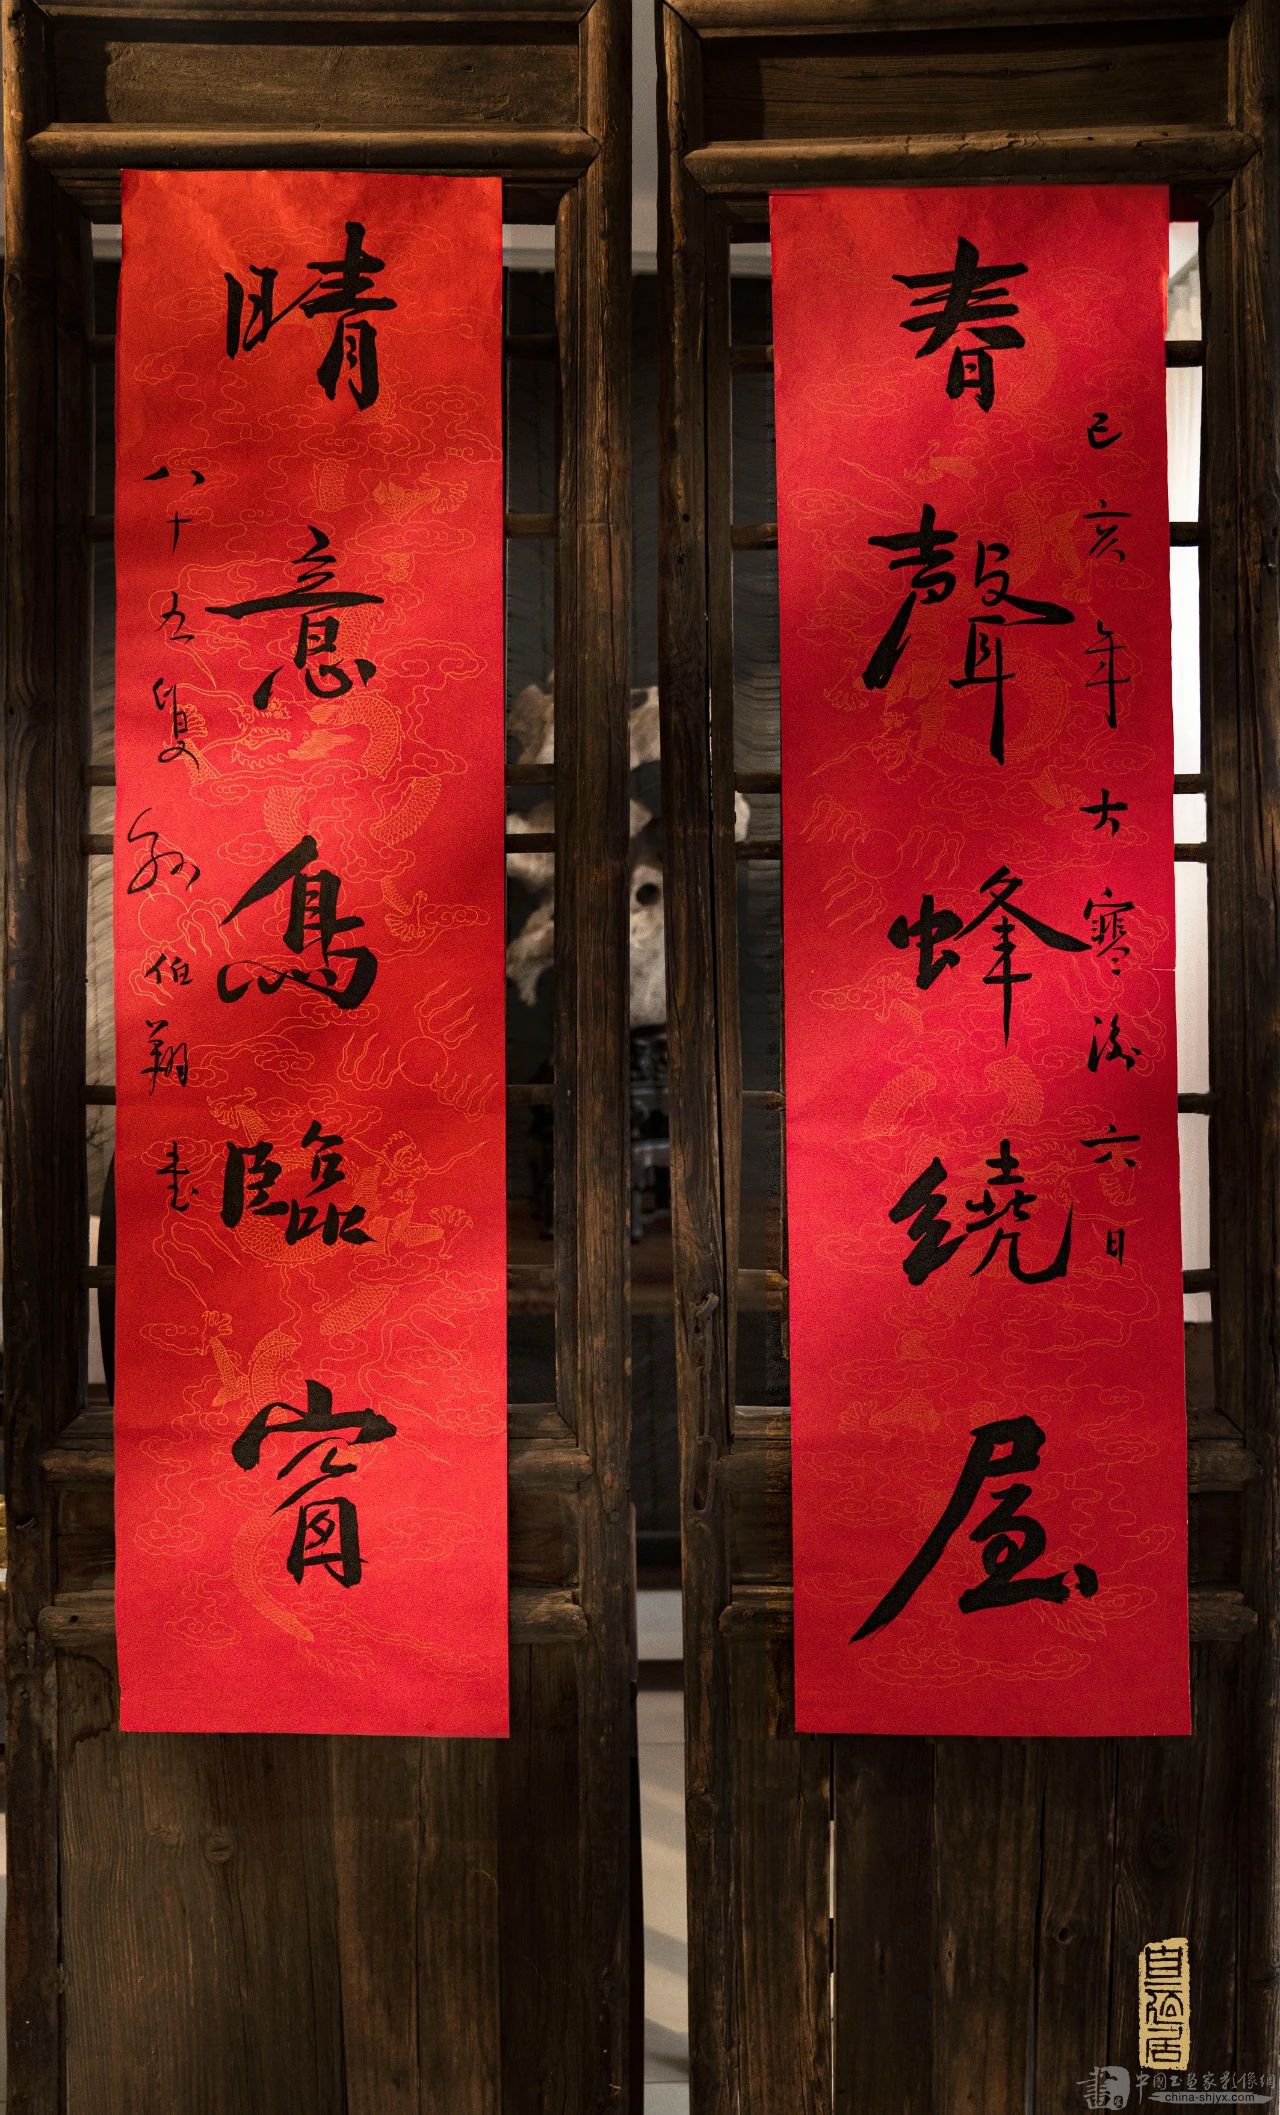 己亥年大寒後六日
春聲蜂繞屋
晴意鳥臨窗
八十五叟孫伯翔書
中國書畫家影像網
china-shjyx.com